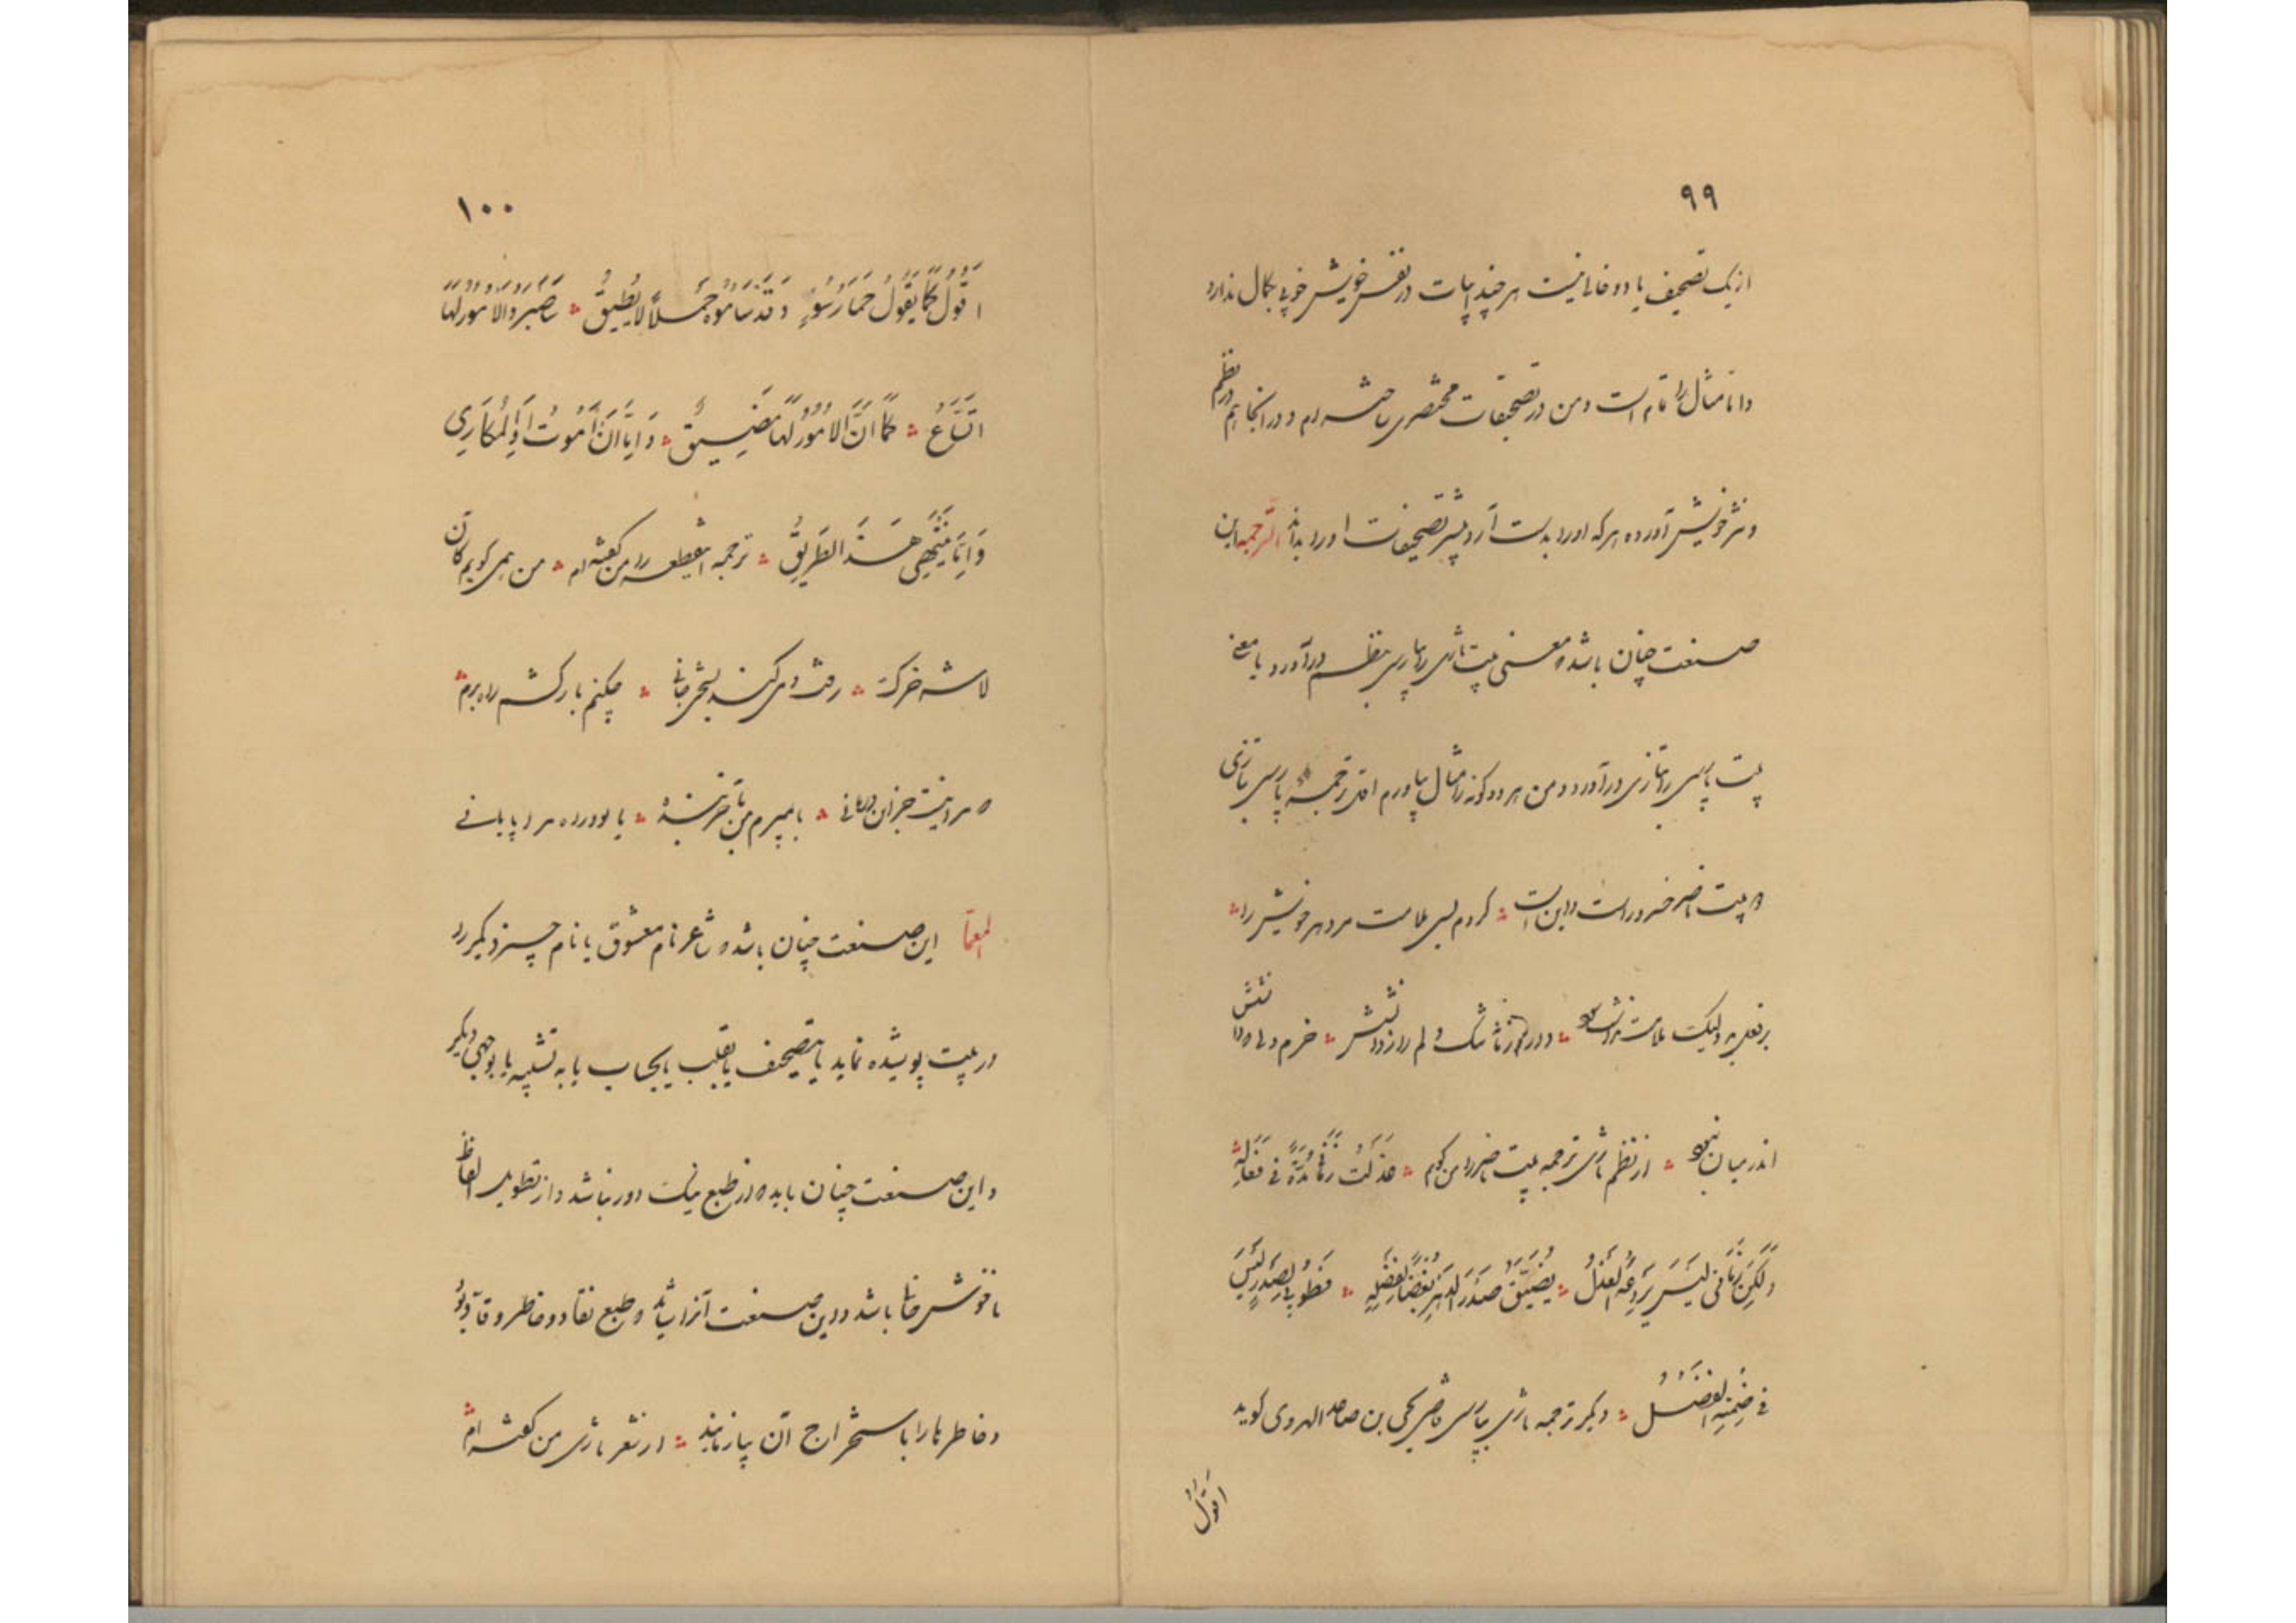 ۹۹
از یک تصحیف یا دو خالی نیست هر چند ابیات در نفس خویش خوبی بکمال ندارد
و اما مثال را تمام است و من در تصحیفات مختصری ساخته‌ام و در آنجا هم در نظم
و نثر خویش آورده هر که او را بدست آرد بیشتر تصحیفات او را بداند الترجمه این
صنعت چنان باشد که معنی بیت تازی را بپارسی بنظم درآورد یا معنی
بیت پارسی را بتازی درآورد و من هر دو گونه را مثال بیاورم ترجمه پارسی بتازی
بیت ناصر خسرو راست و این است کردم بسی ملامت مر دهر خویش را
بر فعل بد ولیک ملامت نداشت سود دارد زمانه تنگ دلم را ز دانش خرم دلی که دانش
اندر میان نبود از نظم تازی ترجمه بیت ناصر را من گویم عذلت زمانی مدة في فعاله
ولكن زماني ليس يردعه العذل يضيق صدري الدهر بغضا لفضله فطوبى لصدر ليس
في ضمنه الفضل دیگر ترجمه تازی بپارسی قاضی یحیی بن صاعد الهروی گوید
اقول
۱۰۰
اقول كما يقول حمار سوء وقد ساموه حملا لا يطيق ساصبر والامور لها
اتساع كما ان الامور لها مضيق واما ان اموت او المكاري
واما ينتهي هذا الطريق ترجمه این قطعه را من گفته‌ام من همی گویم کان
لاشه خرک رفت و می‌کند بسختی جانی چکنم بار کشم راه برم
که مرا نیست جز این درمانی یا بمیرم من یا خربنده یا بود راه مرا پایانی
المعما این صنعت چنان باشد که شاعر نام معشوق یا نام چیز دیگر را
در بیت پوشیده نماید یا بتصحیف یا بقلب یا بحساب یا به تشبیه یا بوجهی دیگر
و این صنعت چنان باید که از طبع نیک دور نباشد و از تطویل الفاظ
ناخوش خالی باشد و این صنعت آنرا شاید که طبع نقاد و خاطر وقاد بود
و خاطرها را باستخراج آن بیازمایند از شعر تازی من گفته‌ام